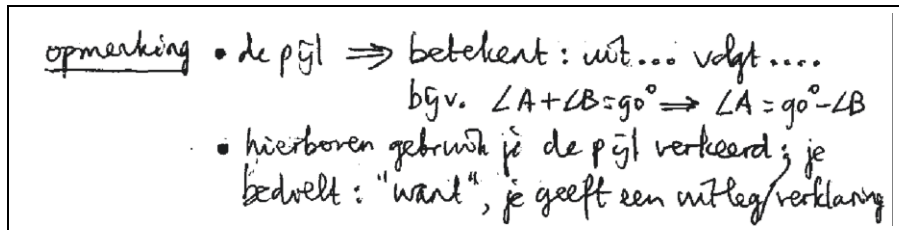 opmerking • de pijl ⇒ betekent : uit... volgt ....
bijv. ∠A+∠B=90° ⇒ ∠A = 90°-∠B
• hierboven gebruik je de pijl verkeerd ; je
bedoelt : "want", je geeft een uitleg/verklaring